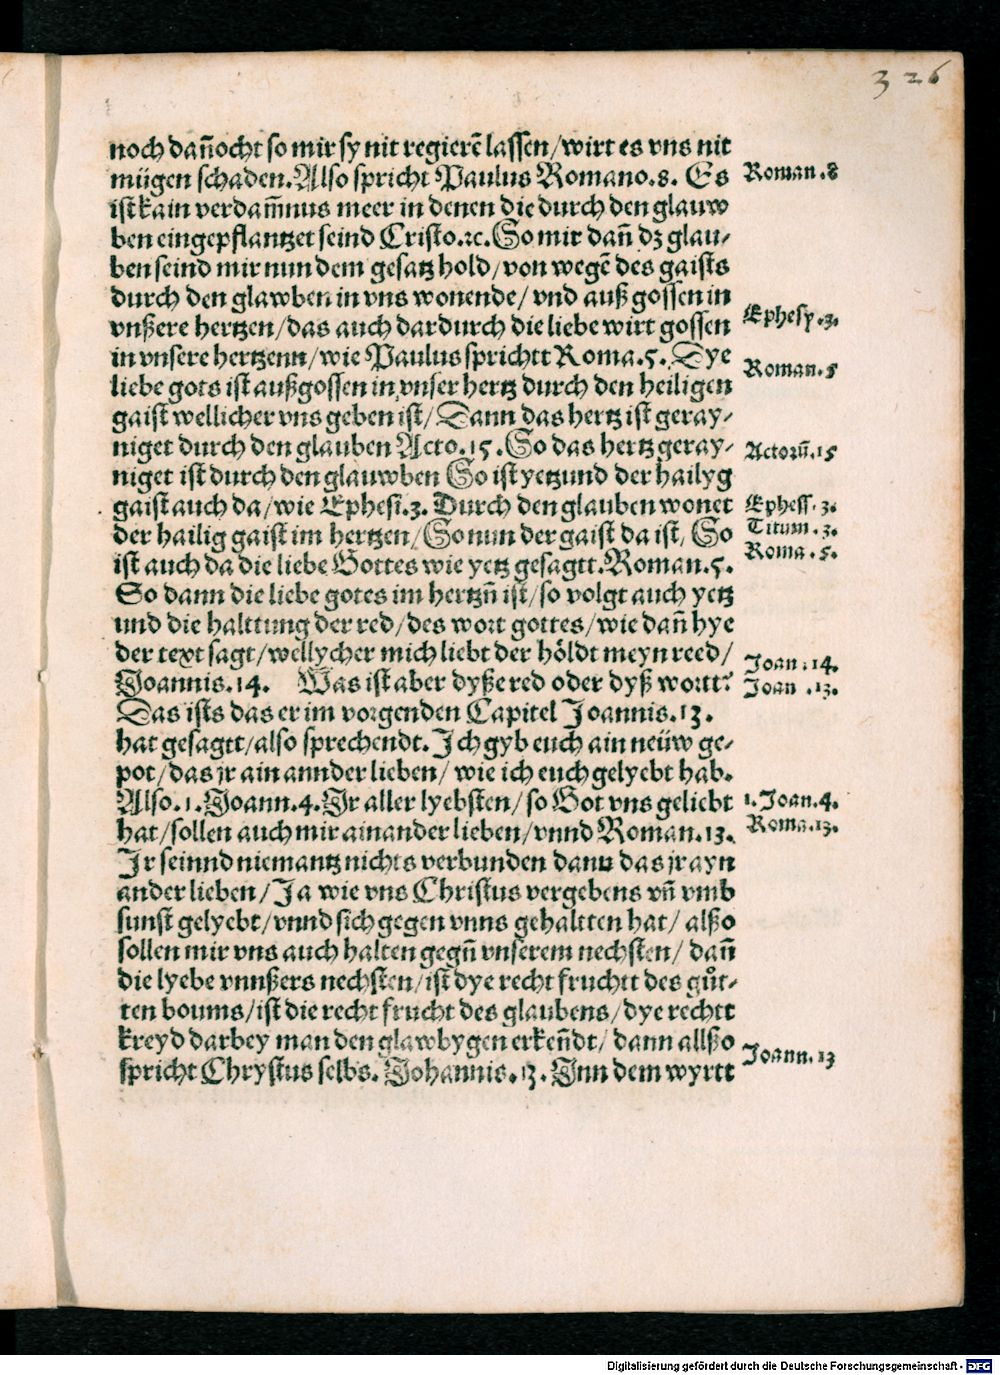 326
noch dañocht so mir sy nit regierẽ lassen/wirt es vns nit
mügen schaden. Also spricht Paulus Romano.8. Es
ist kain verdam̃nus meer in denen die durch den glauw
ben eingepflantzet seind Cristo.ꝛc. So mir dañ dz glau-
ben seind mir nun dem gesatz hold/von wegẽ des gaists
durch den glawben in vns wonende/ vnd auß gossen in
vnßere hertzen/das auch dardurch die liebe wirt gossen
in vnsere hertzenn/wie Paulus sprichtt Roma.5. Dye
liebe gots ist außgossen in vnser hertz durch den heiligen
gaist wellicher vns geben ist/ Dann das hertz ist geray-
niget durch den glauben Acto.15. So das hertz geray-
niget ist durch den glauwben So ist yetzund der hailyg
gaist auch da/wie Ephesi.3. Durch den glauben wonet
der hailig gaist im hertzen/ So nun der gaist da ist, So
ist auch da die liebe Gottes wie yetz gesagtt. Roman.5.
So dann die liebe gotes im hertzñ ist/so volgt auch yetz
und die halttung der red/des wort gottes/wie dañ hye
der text sagt/wellycher mich liebt der höldt meyn reed/
Joannis.14. Was ist aber dyße red oder dyß wortt?
Das ists das er im vorgenden Capitel Joannis.13.
hat gesagtt/also sprechendt. Ich gyb euch ain neüw ge-
pot/das jr ain annder lieben/ wie ich euch gelyebt hab.
Also.1.Joann.4.Jr aller lyebsten/so Got vns geliebt
hat/sollen auch mir ainander lieben/vnnd Roman.13.
Jr seinnd niemantz nichts verbunden dann das jr ayn
ander lieben/Ja wie vns Christus vergebens vñ vmb
sunst gelyebt/vnnd sich gegen vnns gehaltten hat/ alßo
sollen mir vns auch halten gegñ vnserem nechsten/ dañ
die lyebe vnnßers nechsten/ist dye recht fruchtt des gůt-
ten boums/ist die recht frucht des glaubens/dye rechtt
kreyd darbey man den glawbygen erkeñdt/ dann allßo
spricht Chrystus selbs. Johannis.13. Inn dem wyrtt
Roman.8
Ephesy.3.
Roman.5
Actorũ.15
Ephess.3.
Titum.3.
Roma.5.
Joan.14.
Joan.13.
1.Joan.4.
Roma.13.
Joann.13
Digitalisierung gefördert durch die Deutsche Forschungsgemeinschaft - DFG